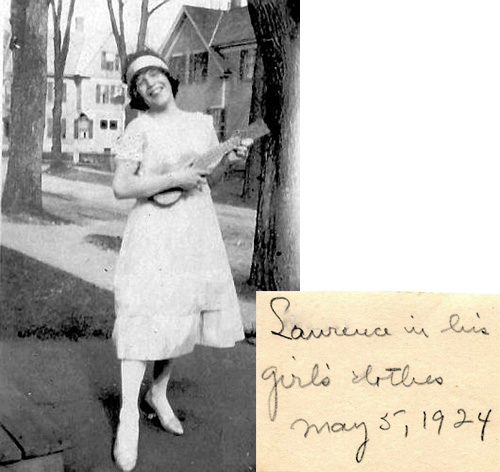 Lawrence in his
girl's clothes
May 5, 1924